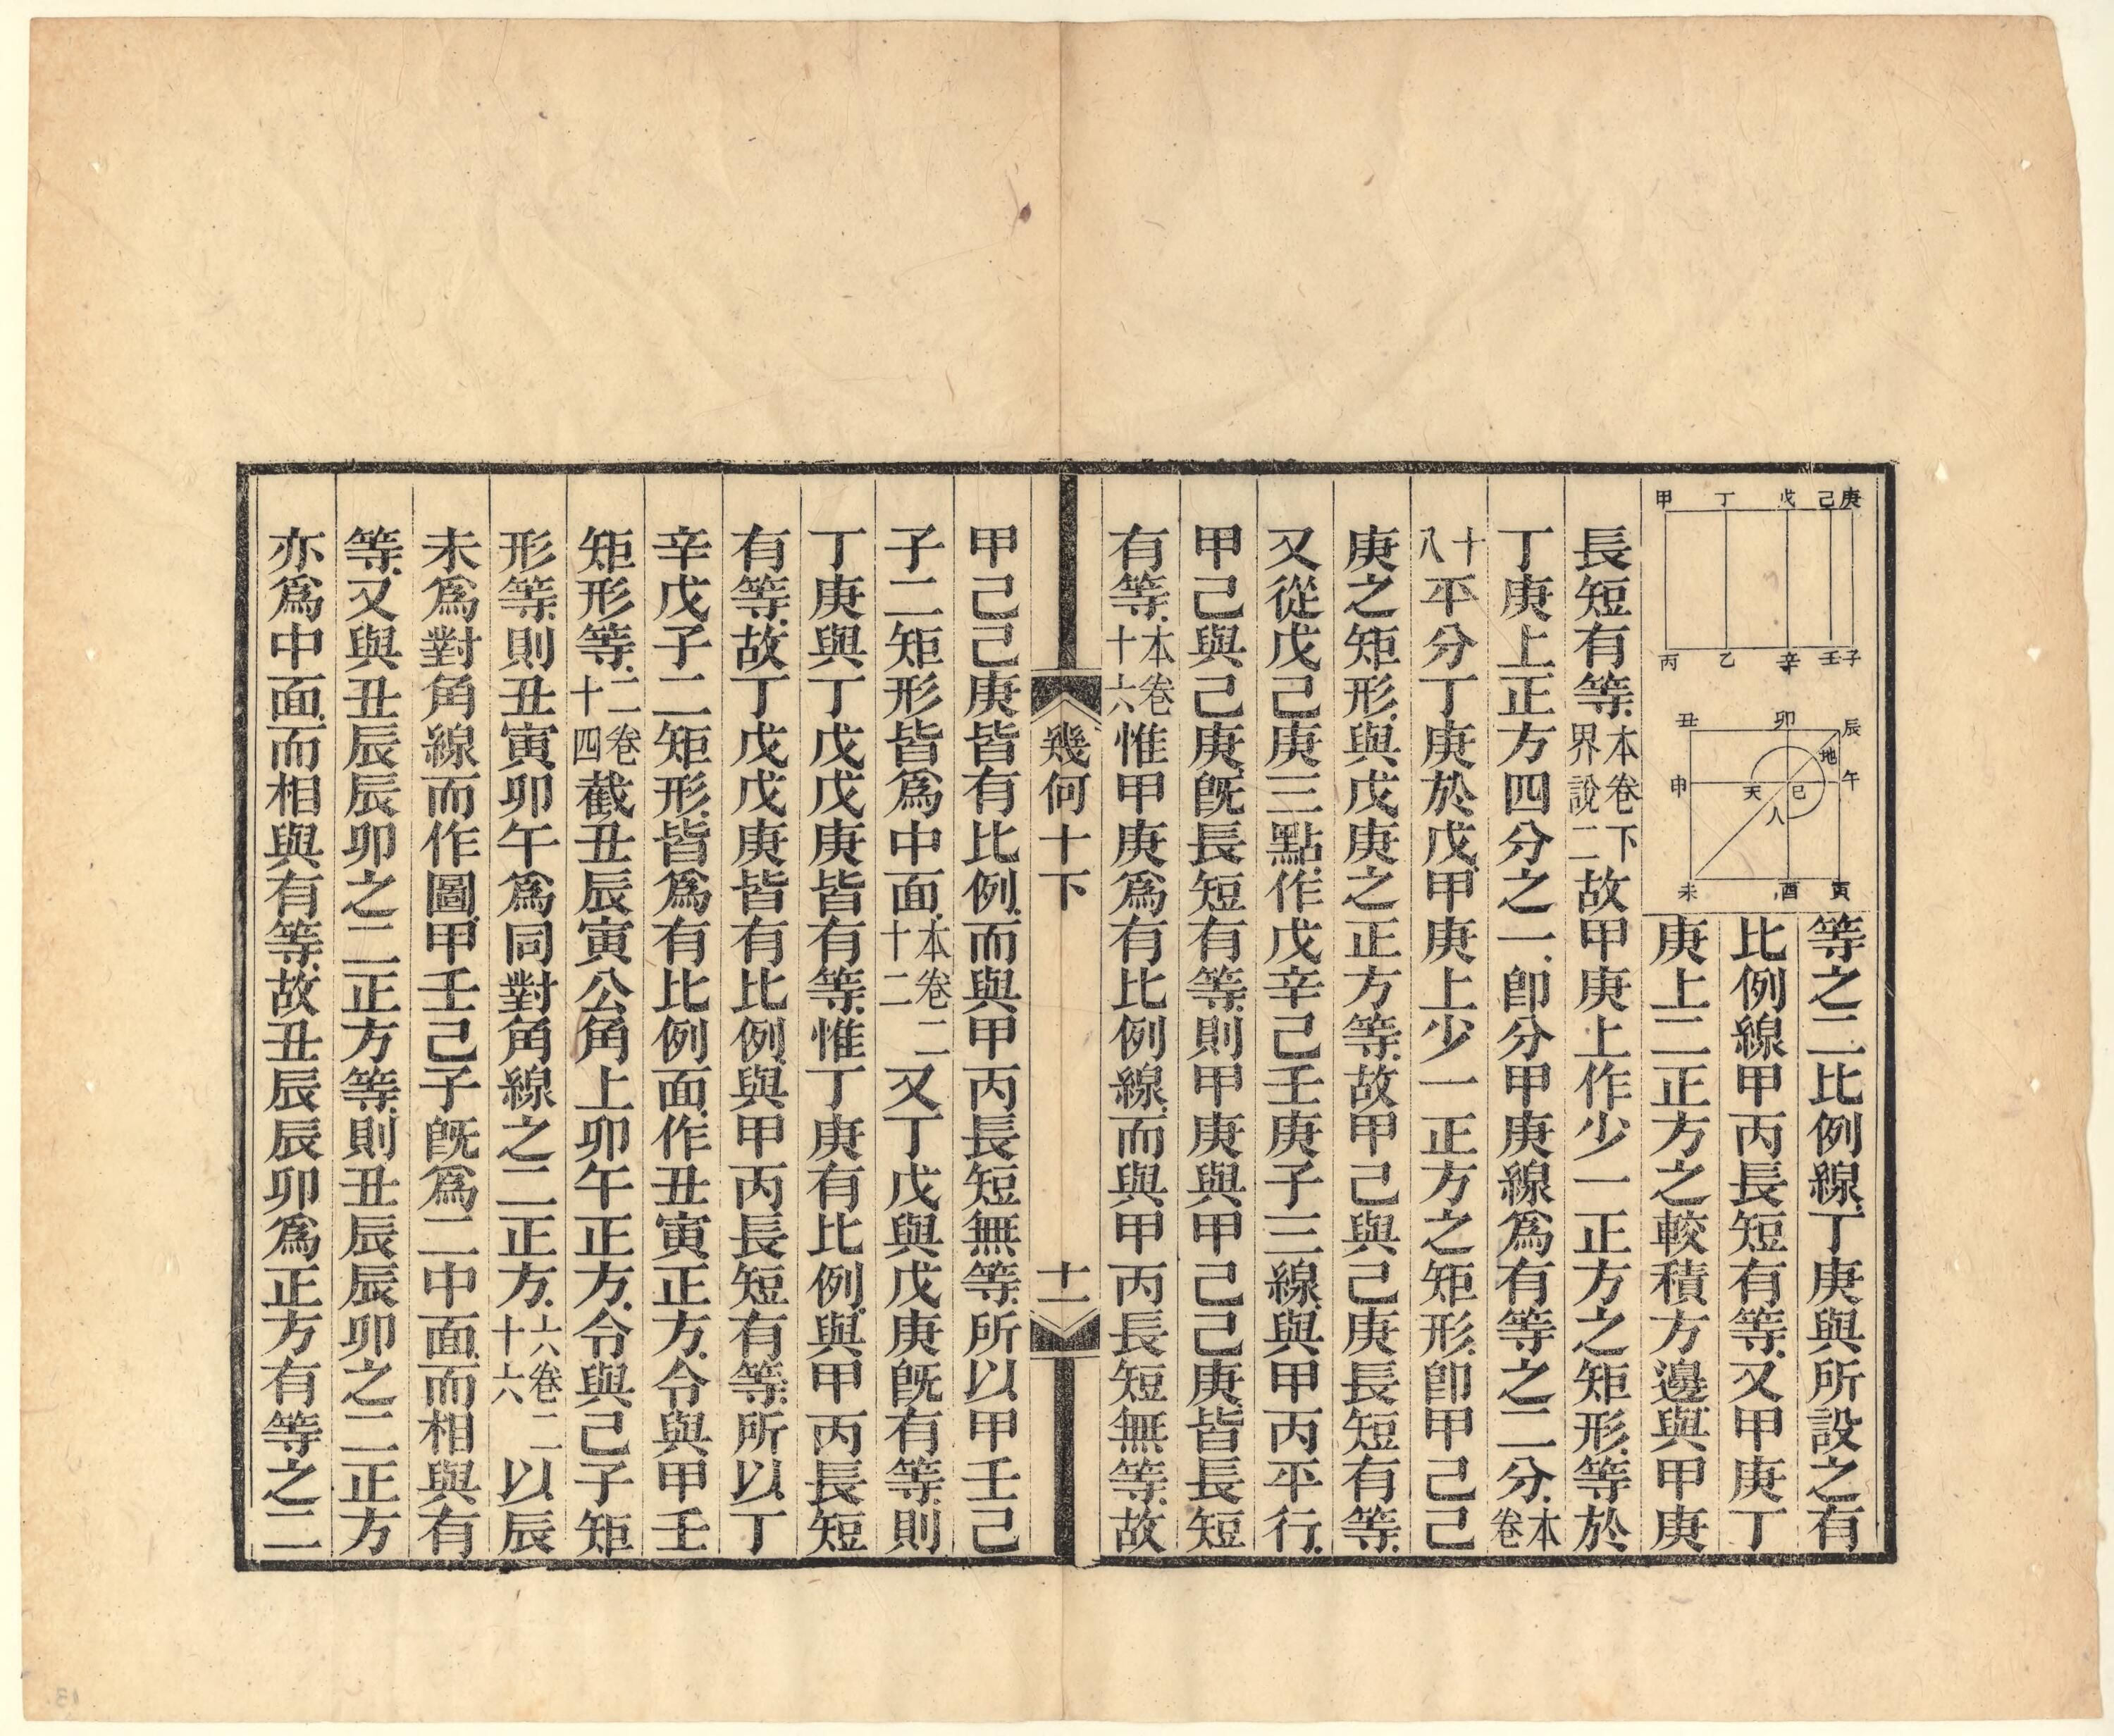 甲 丁 戊 己 庚
丙 乙 辛 壬 子
丑 卯 辰
地
申 天 巳 午
人
未 酉 寅
等之二比例線丁庚與所設之有
比例線甲丙長短有等又甲庚丁
庚上二正方之較積方邊與甲庚
長短有等本卷下界說二故甲庚上作少一正方之矩形等於
丁庚上正方四分之一卽分甲庚線爲有等之二分本卷
十八平分丁庚於戊甲庚上少一正方之矩形卽甲己己
庚之矩形與戊庚之正方等故甲己與己庚長短有等
又從戊己庚三點作戊辛己壬庚子三線與甲丙平行
甲己與己庚旣長短有等則甲庚與甲己己庚皆長短
有等本卷十六惟甲庚爲有比例線而與甲丙長短無等故
幾何十下 十一
甲己己庚皆有比例而與甲丙長短無等所以甲壬己
子二矩形皆爲中面本卷二十二又丁戊與戊庚旣有等則
丁庚與丁戊戊庚皆有等惟丁庚有比例與甲丙長短
有等故丁戊戊庚皆有比例與甲丙長短有等所以丁
辛戊子二矩形皆爲有比例面作丑寅正方令與甲壬
矩形等二卷十四截丑辰寅公角上卯午正方令與己子矩
形等則丑寅卯午爲同對角線之二正方六卷二十六以辰
未爲對角線而作圖甲壬己子旣爲二中面而相與有
等又與丑辰辰卯之二正方等則丑辰辰卯之二正方
亦爲中面而相與有等故丑辰辰卯爲正方有等之二